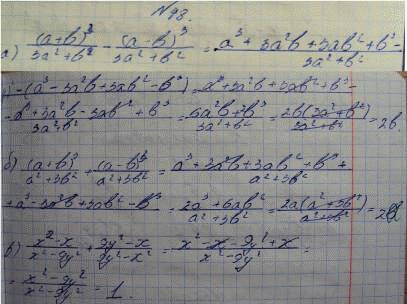 №98.
а) (a+b)³/(3a²+b²) - (a-b)³/(3a²+b²) = (a³+3a²b+3ab²+b³-
-(a³-3a²b+3ab²-b³))/(3a²+b²) = (a³+3a²b+3ab²+b³-
-a³+3a²b-3ab²+b³)/(3a²+b²) = (6a²b+2b³)/(3a²+b²) = 2b(3a²+b²)/(3a²+b²) = 2b.
б) (a+b)³/(a²+3b²) + (a-b)³/(a²+3b²) = (a³+3a²b+3ab²+b³+
+a³-3a²b+3ab²-b³)/(a²+3b²) = (2a³+6ab²)/(a²+3b²) = 2a(a²+3b²)/(a²+3b²) = 2a
в) (x²-x)/(x²-9y²) + (9y²-x)/(9y²-x²) = (x²-x-9y²+x)/(x²-9y²) =
= (x²-9y²)/(x²-9y²) = 1.